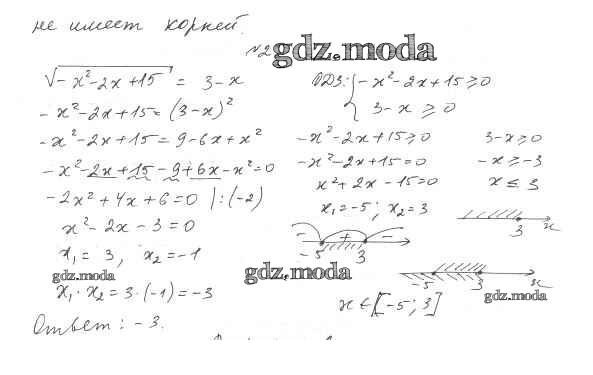 не имеет корней.
№2 gdz.moda
√-x²-2x+15 = 3-x
-x²-2x+15=(3-x)²
-x²-2x+15=9-6x+x²
-x²-2x+15-9+6x-x²=0
-2x²+4x+6=0 |:(-2)
x²-2x-3=0
x₁=3, x₂=-1
gdz.moda
x₁·x₂=3·(-1)=-3
Ответ: -3.
ОДЗ: { -x²-2x+15≥0
3-x≥0
-x²-2x+15≥0
-x²-2x+15=0
x²+2x-15=0
x₁=-5; x₂=3
- + -
-5 3
gdz.moda
3-x≥0
-x≥-3
x≤3
3 x
-5 3 x
gdz.moda
x∈[-5;3]